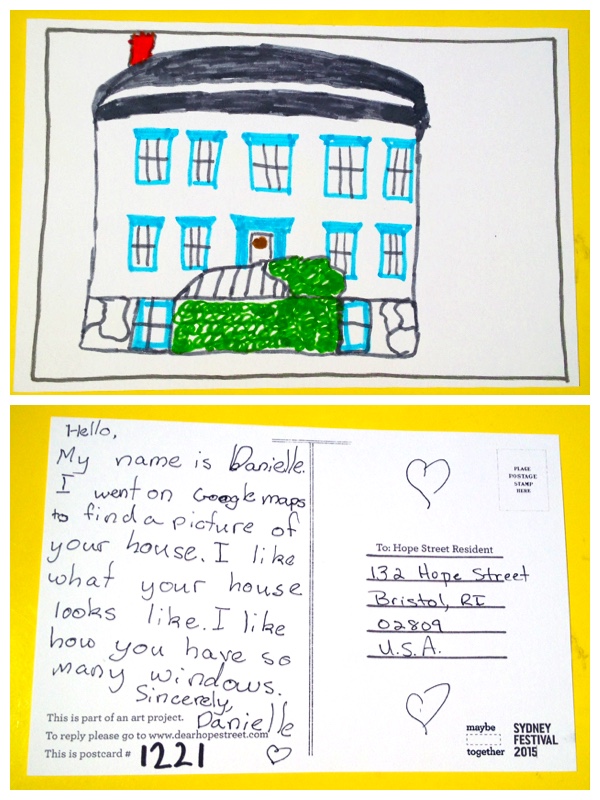 Hello,
My name is Danielle.
I went on Google maps
to find a picture of
your house. I like
what your house
looks like. I like
how you have so
many windows.
Sincerely,
Danielle
This is part of an art project.
To reply please go to www.dearhopestreet.com
This is postcard # 1221
PLACE
POSTAGE
STAMP
HERE
To: Hope Street Resident
132 Hope Street
Bristol, RI
02809
U.S.A.
maybe
together
SYDNEY
FESTIVAL
2015